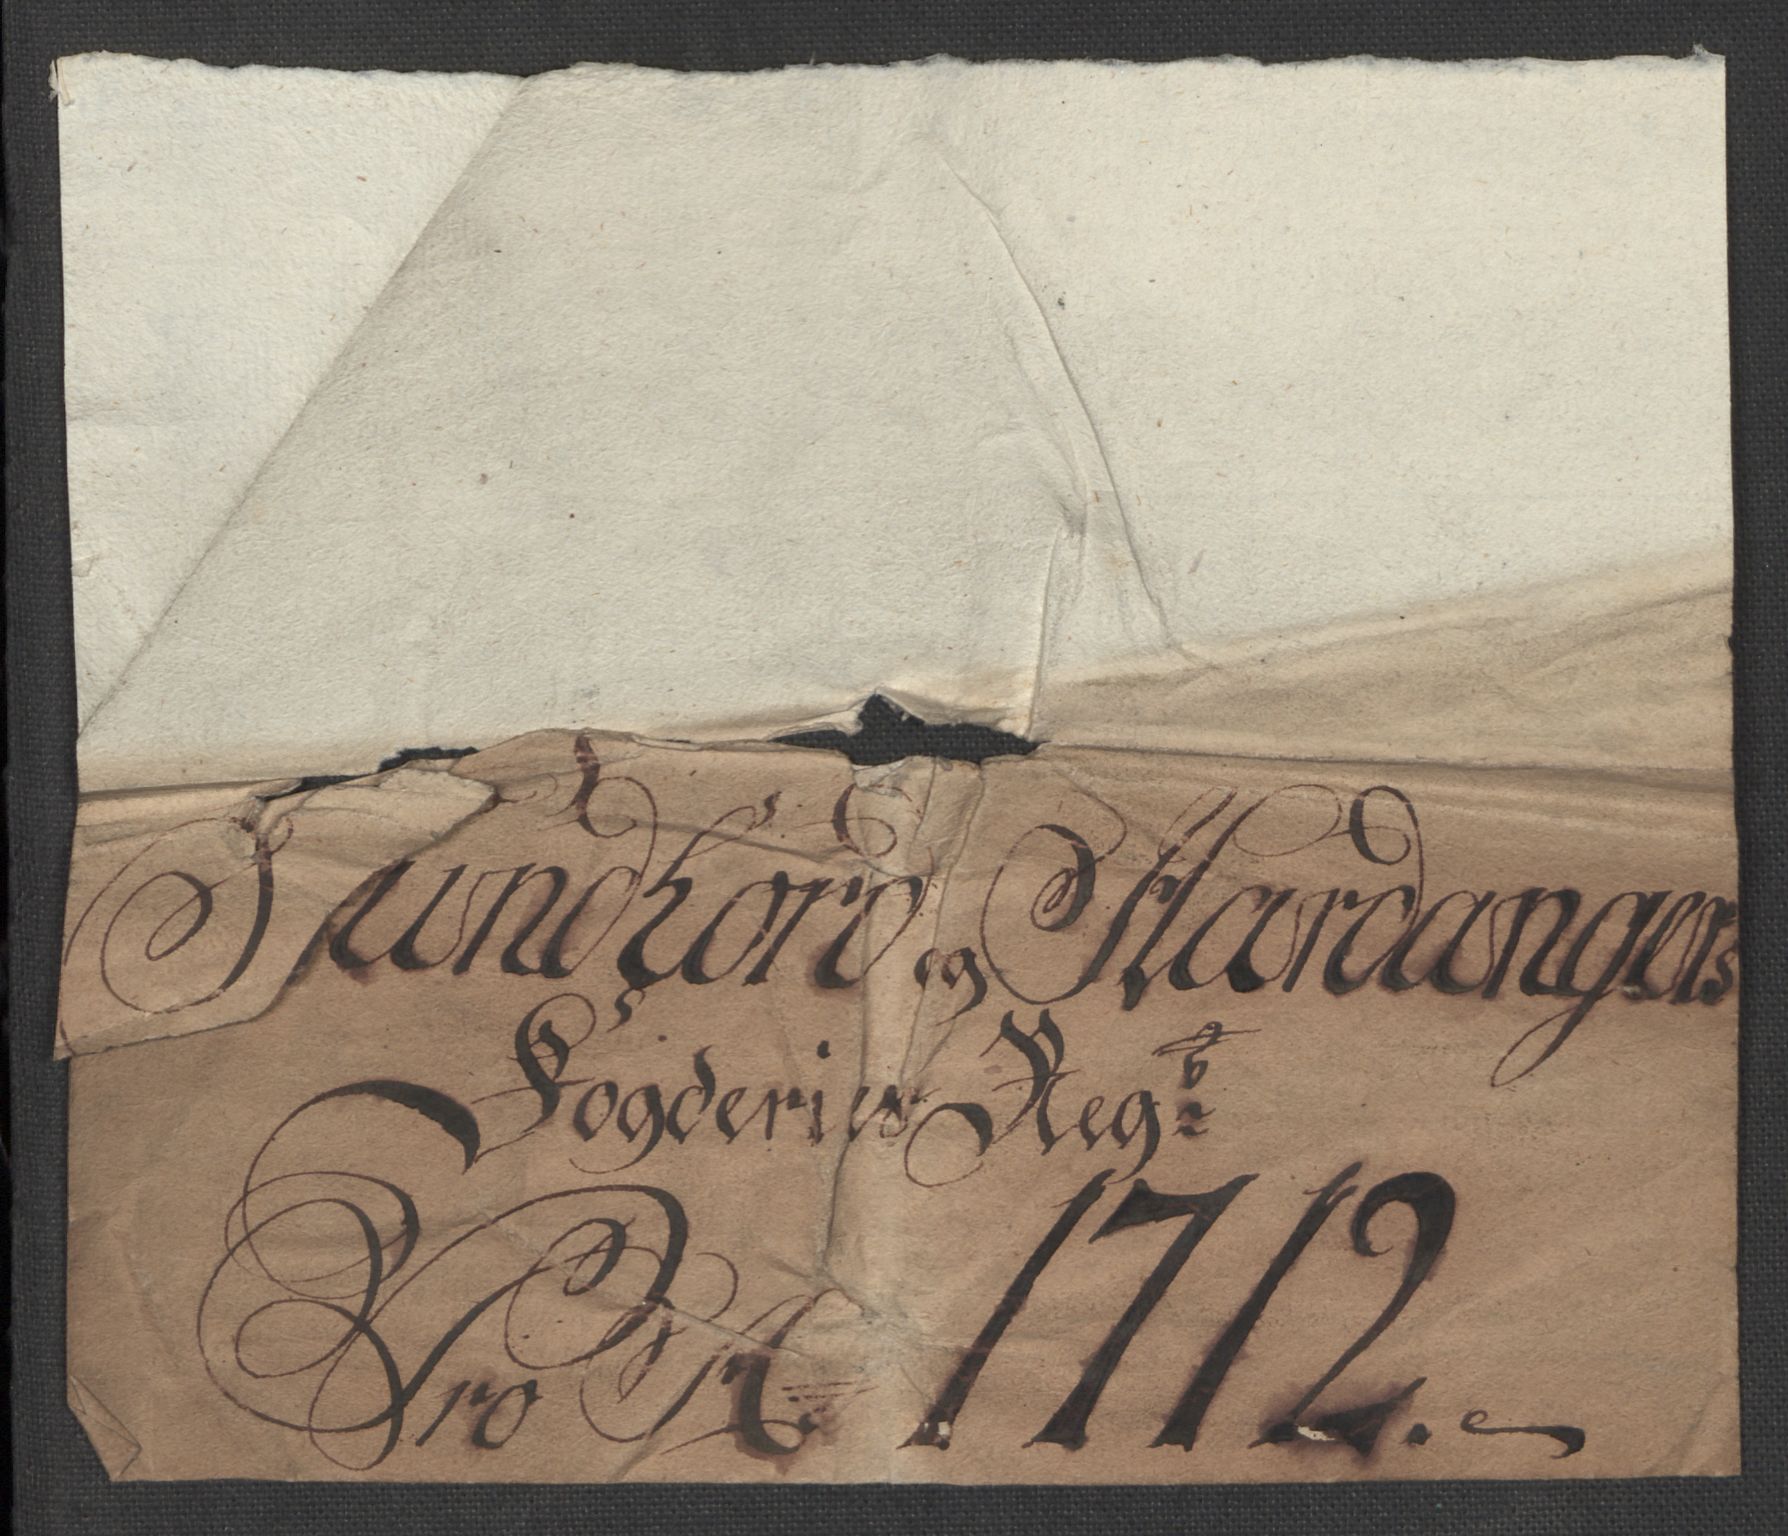 Sundhord og Hardangers
Fogderies Regb:
Pro Ao 1712.